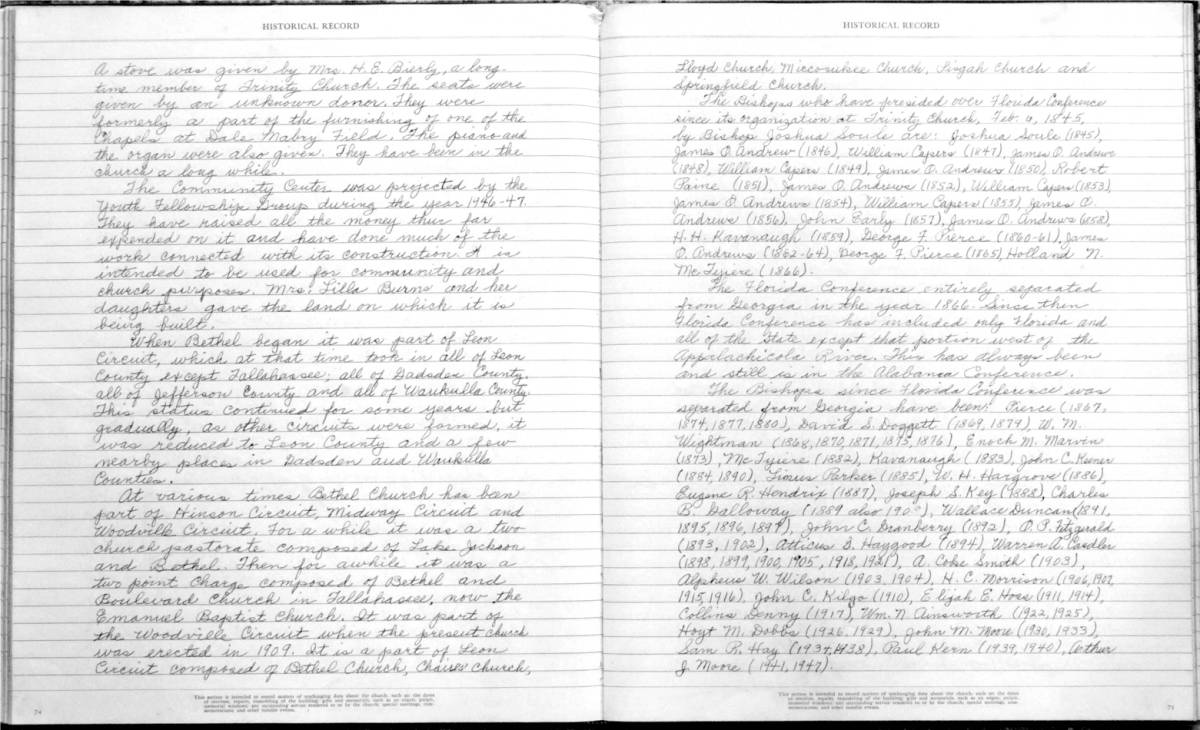 HISTORICAL RECORD
A stove was given by Mrs. H. E. Bierly, a long-
time member of Trinity Church. The seats were
given by an unknown donor. They were
formerly a part of the furnishing of one of the
Chapels at Dale Mabry Field. The piano and
the organ were also given. They have been in the
church a long while.
The Community Center was projected by the
Youth Fellowship Group during the year 1946-47.
They have raised all the money thus far
expended on it and have done much of the
work connected with its construction. It is
intended to be used for community and
church purposes. Mrs. Lilla Burns and her
daughters gave the land on which it is
being built.
When Bethel began it was part of Leon
Circuit, which at that time took in all of Leon
County except Tallahassee; all of Gadsden County,
all of Jefferson County and all of Waukulla County.
This status continued for some years but
gradually, as other circuits were formed, it
was reduced to Leon County and a few
nearby places in Gadsden and Waukulla
Counties.
At various times Bethel Church has been
part of Hinson Circuit, Midway Circuit and
Woodville Circuit. For a while it was a two
church pastorate composed of Lake Jackson
and Bethel. Then for awhile it was a
two point Charge composed of Bethel and
Boulevard Church in Tallahassee, now the
Emanuel Baptist Church. It was part of
the Woodville Circuit when the present church
was erected in 1909. It is a part of Leon
Circuit composed of Bethel Church, Chaires Church,
This section is intended to record matters of unchanging data about the church, such as the dates
of erection, repairs, remodeling of the building; gifts and memorials, such as an organ, pulpit,
memorial windows; any outstanding service rendered to or by the church; special meetings, com-
memorations; and other notable events.
74
HISTORICAL RECORD
Lloyd Church, Miccosukee Church, Pisgah Church and
Springfield Church.
The Bishops who have presided over Florida Conference
since its organization at Trinity Church, Feb. 6, 1845,
by Bishop Joshua Soule are: Joshua Soule (1845),
James O. Andrew (1846), William Capers (1847), James O. Andrew
(1848), William Capers (1849), James O. Andrews (1850), Robert
Paine (1851), James O. Andrews (1852), William Capers (1853),
James O. Andrews (1854), William Capers (1855), James O.
Andrews (1856), John Early (1857), James O. Andrews (1858),
H. H. Kavanaugh (1859), George F. Pierce (1860-61), James
O. Andrews (1862-64), George F. Pierce (1865), Holland N.
McTyiere (1866).
The Florida Conference entirely separated
from Georgia in the year 1866. Since then
Florida Conference has included only Florida and
all of the State except that portion west of the
Appalachicola River. This has always been
and still is in the Alabama Conference.
The Bishops since Florida Conference was
separated from Georgia have been: Pierce (1867,
1874, 1877, 1880), David S. Doggett (1869, 1879), W. M.
Wightman (1868, 1870, 1871, 1875, 1876), Enoch M. Marvin
(1873), McTyiere (1882), Kavanaugh (1883), John C. Keener
(1884, 1890), Linus Parker (1885), W. H. Hargrove (1886),
Eugene R. Hendrix (1887), Joseph S. Key (1888), Charles
B. Galloway (1889 also), Wallace Duncan (1891,
1895, 1896, 1897), John C. Granberry (1892), O. P. Fitzgerald
(1893, 1902), Atticus G. Haygood (1894) Warren A. Candler
(1898, 1899, 1900, 1905, 1918, 1921), A. Coke Smith (1903),
Alpheus W. Wilson (1903, 1904), H. C. Morrison (1906, 1907,
1915, 1916), John C. Kilgo (1910), Elijah E. Hoss (1911, 1914),
Collins Denny (1917), Wm. N. Ainsworth (1922, 1925),
Hoyt M. Dobbs (1926, 1929), John M. Moore (1930, 1933),
Sam R. Hay (1934, 1938), Paul Kern (1939, 1940), Arthur
J. Moore (1941, 1947).
This section is intended to record matters of unchanging data about the church, such as the dates
of erection, repairs, remodeling of the building; gifts and memorials, such as an organ, pulpit,
memorial windows; any outstanding service rendered to or by the church; special meetings, com-
memorations; and other notable events.